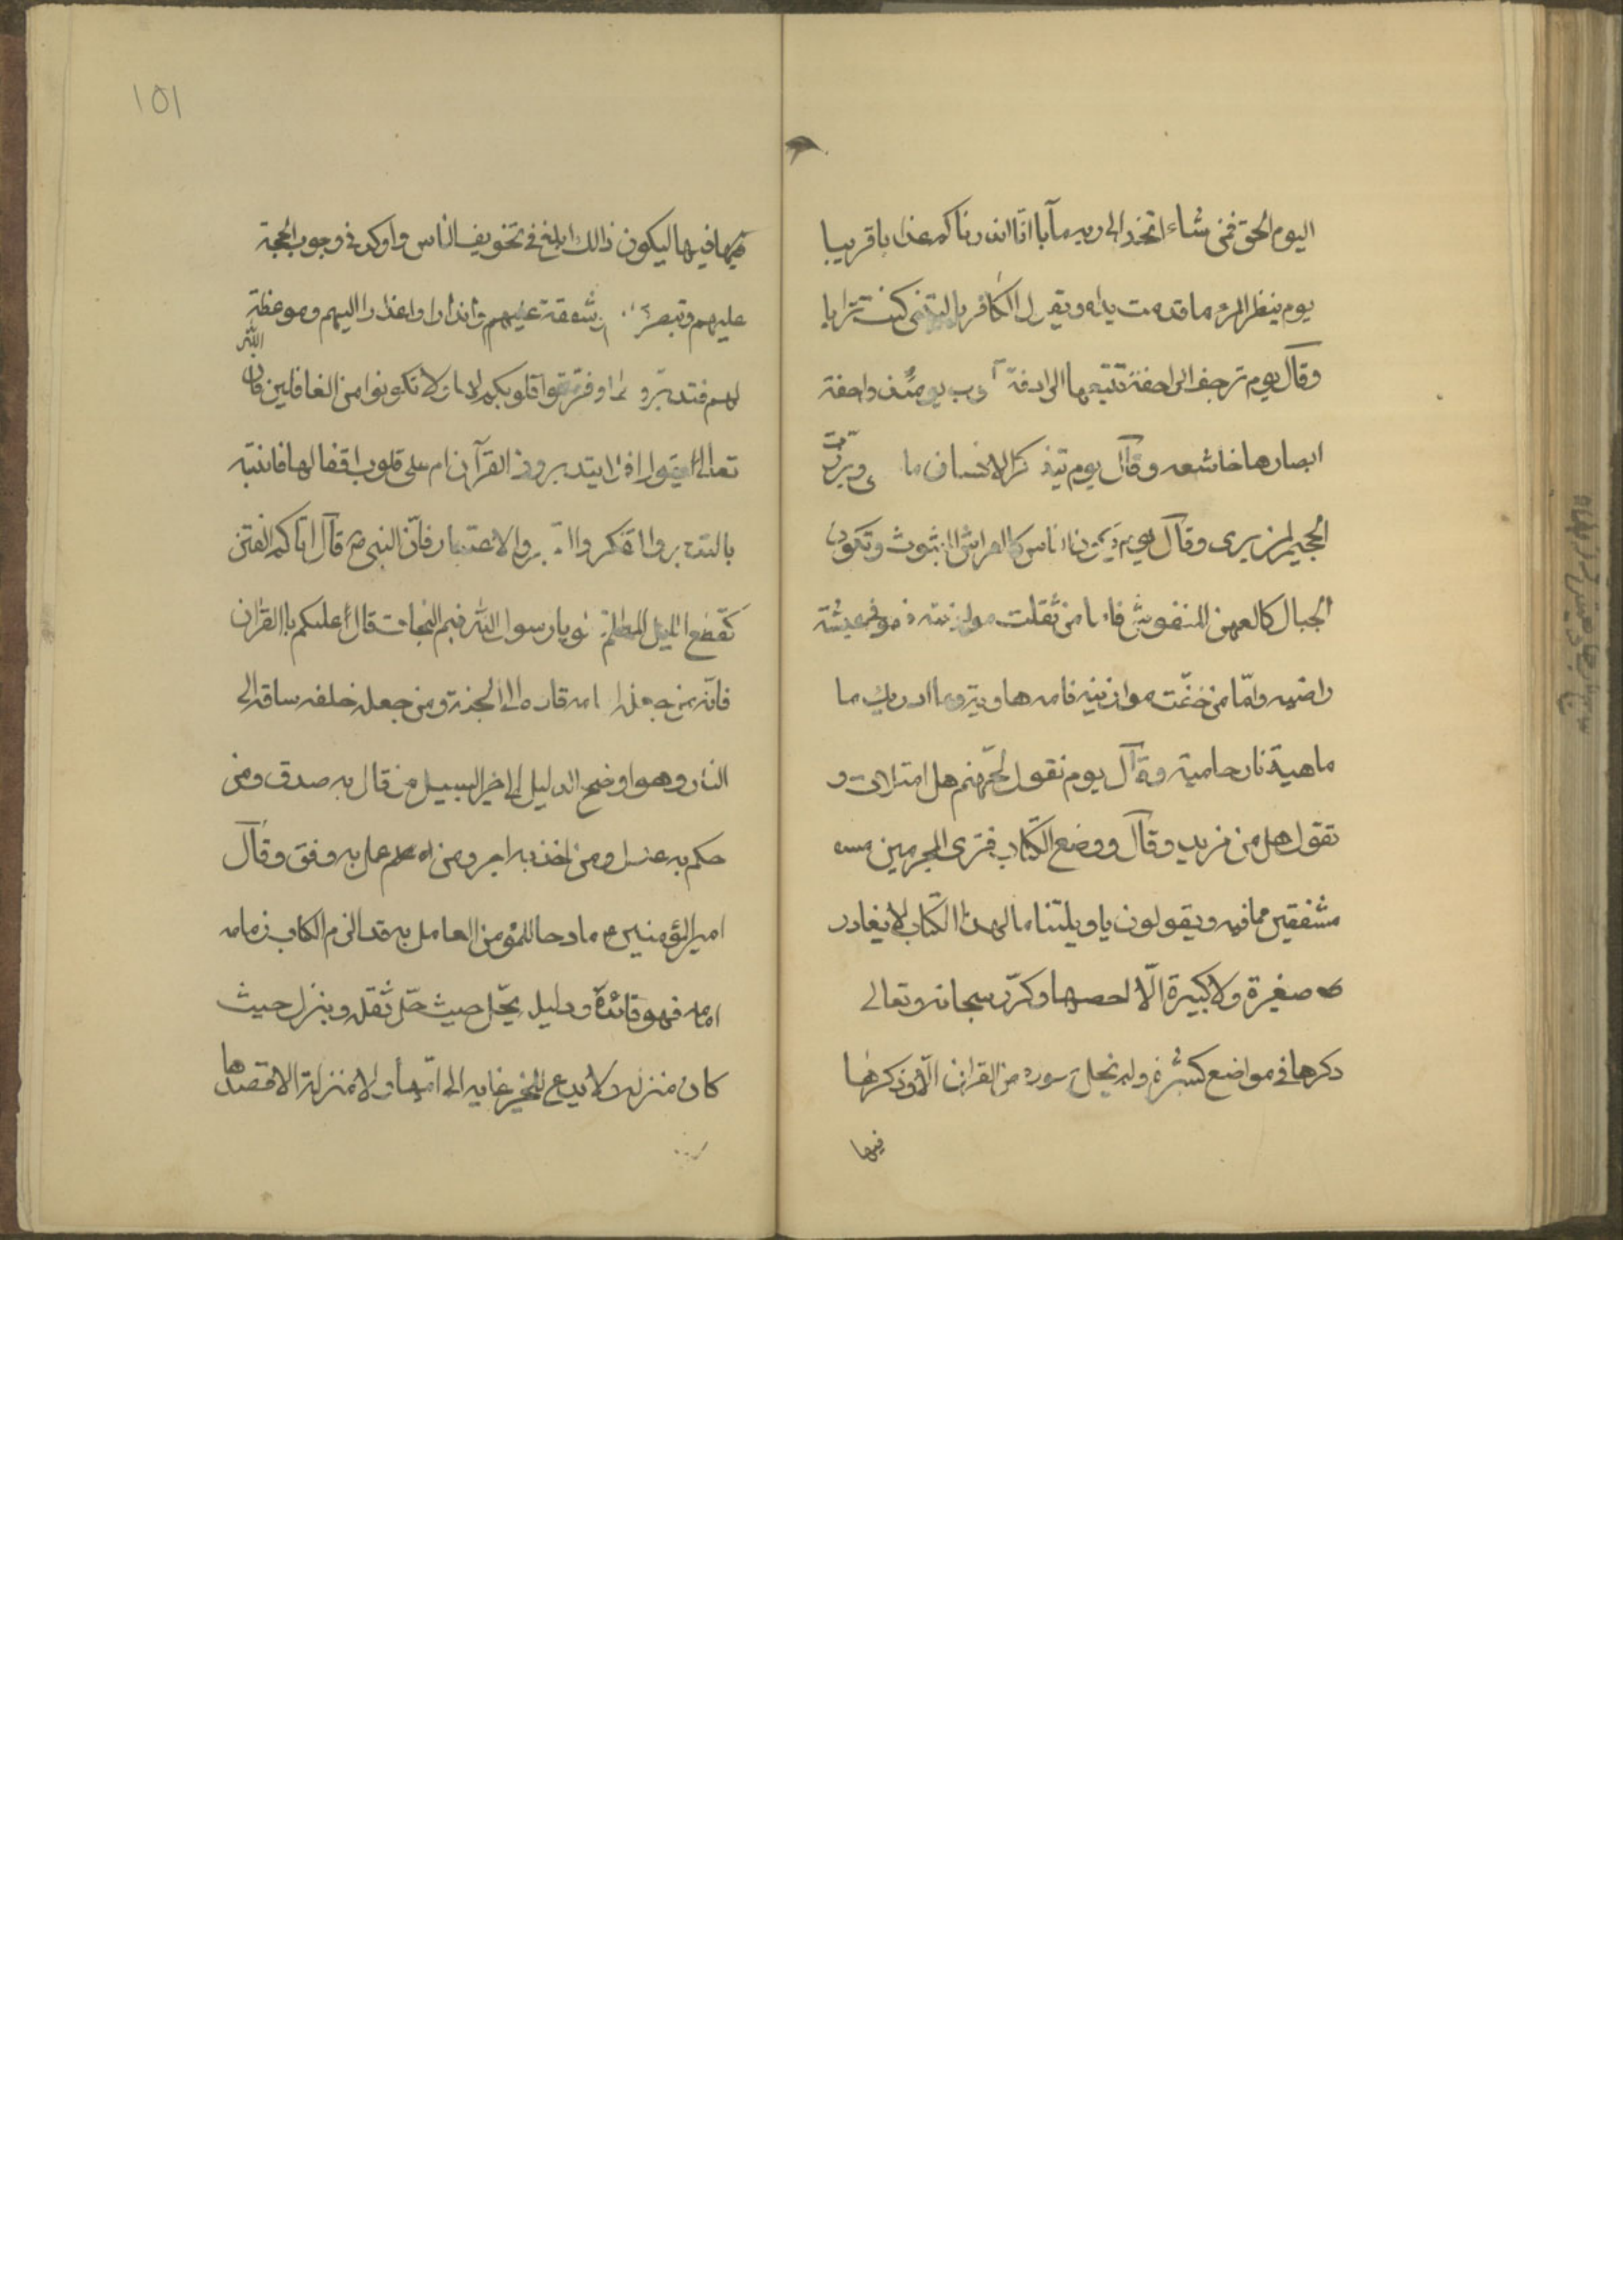 اليوم الحق فمن شاء اتخذ الى ربه مآبا انّا انذرناكم عذابا قريبا
يوم ينظر المرء ما قدمت يداه ويقول الكافر ياليتنى كنت ترابا
وقال يوم ترجف الراجفة تتبعها الرادفة يومئذ واجفة
ابصارها خاشعه وقال يوم يتذكر الانسان ما وبرزت
الجحيم لمن يرى وقال يوم يكون الناس كالفراش المبثوث وتكون
الجبال كالعهن المنفوش فاما من ثقلت موازينه فهو فى عيشة
راضيه وامّا من خفّت موازينه فامه هاوية وما ادريك ما
ماهية نار حامية وقال يوم نقول لجهنم هل امتلات و
تقول هل من مزيد وقال ووضع الكتاب فترى المجرمين
مشفقين مما فيه ويقولون ياويلتنا مال هذا الكتاب لا يغادر
صغيرة ولا كبيرة الّا احصيها وكرّر سبحانه وتعالى
ذكرها فى مواضع كثيرة ولم تخل سوره من القران الّا وذكرها
فيها
١٥١
فيها ليكون ذالك ابلغ فى تخويف الناس واوكد فى وجوب الحجة
عليهم وتبصرة شفقة عليهم وانذارا واعذارا اليهم وموعظة
لهم فتدبروا وفرّغوا قلوبكم لها ولا تكونوا من الغافلين فان الله
تعالى يقول افلا يتدبرون القرآن ام على قلوب اقفالها فانتبه
بالتدبر والتفكر والاعتبار فانّ النبى ص قال اتاكم الفتن
كقطع الليل المظلم يارسول الله فبم النجات قال عليكم باالقران
فانّه من جعله امامه قاده الى الجنة ومن جعله خلفه ساقه الى
النار وهو اوضح الدليل الى خير السبيل من قال به صدق ومن
حكم به عدل ومن اخذ به اجر ومن عمل به وفق وقال
امير المؤمنين ع مادحا للمؤمن العامل به قد الزم الكاب زمامه
امامه فهو قائده ودليله يحّل حيث حّل ثقله وينزل حيث
كان منزله لا يدع للخير غايه الى امّها ولا منزلة الا قصدها